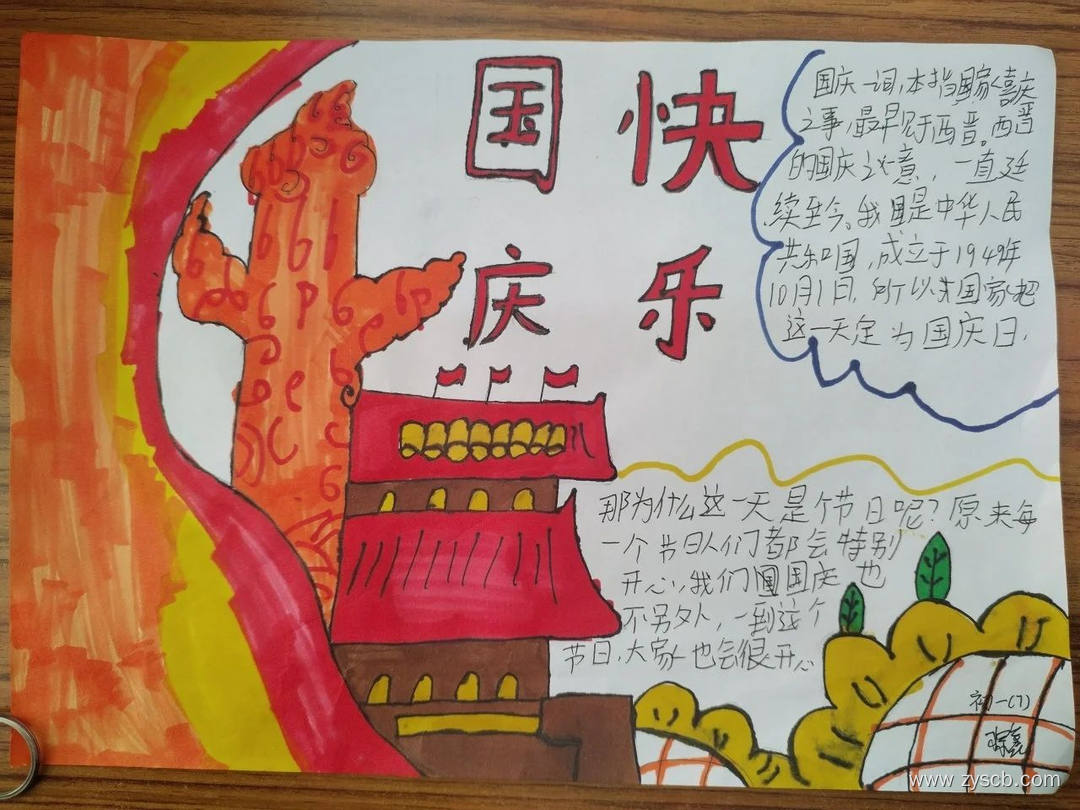 国庆
快乐
国庆一词,本指国家喜庆
之事,最早见于西晋。西晋
的国庆之意,一直延
续至今。我国是中华人民
共和国,成立于1949年
10月1日,所以国家把
这一天定为国庆日.
那为什么这一天是个节日呢?原来每
一个节日人们都会特别
开心,我们国国庆也
不另外,一到这个
节日,大家也会很开心
初一(7)
www.zyscb.com